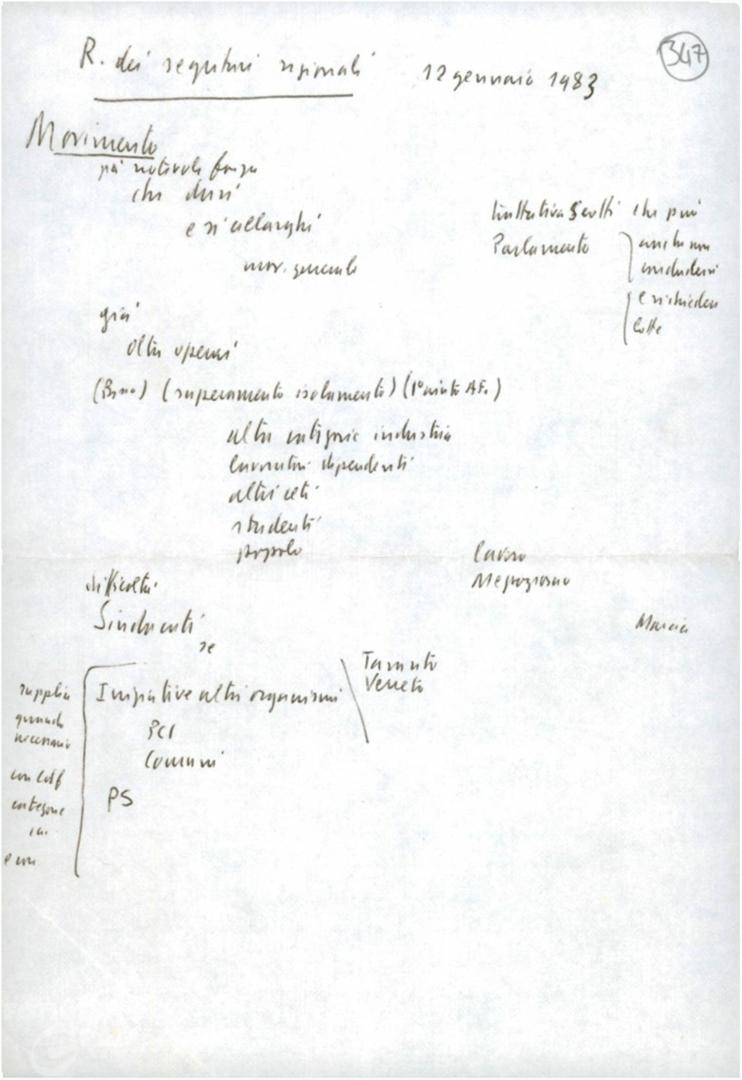 347
R. dei segretari regionali 12 gennaio 1983
Movimento
più notevole forza
che duri
e si allarghi
mov. generale
trattativa Scotti che può
Parlamento
anche non
concludersi
e richiedere
lotte
già
altri operai
(superamento isolamento)
altre categorie industria
lavoratori dipendenti
altri ceti
studenti
popolo
lavoro
Mezzogiorno
difficoltà
Sindacati
se
Marcia
Taranto
Veneto
Iniziative altri organismi
PCI
Comuni
PS
supplire
quando
necessario
con CdF
categorie
e con